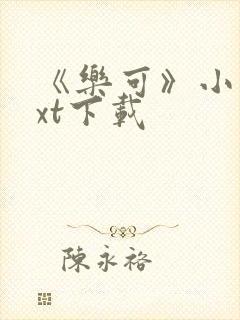 《樂可》小
xt下載
陳永裕